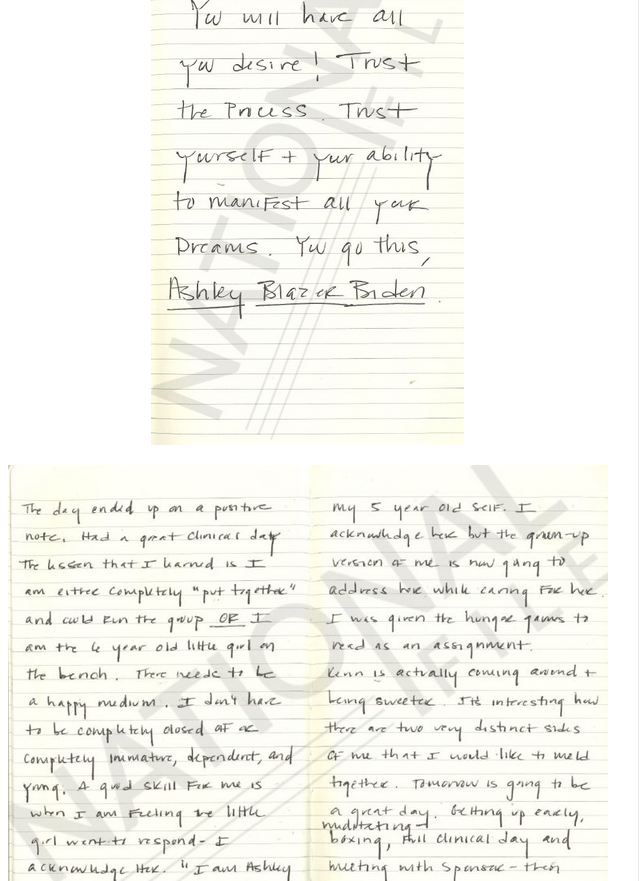 You will have all
you desire! Trust
the Process. Trust
yourself + your ability
to manifest all your
Dreams. You go this,
Ashley Blazer Biden.
NATIONAL FILE
The day ended up on a positive
note. Had a great clinical day
The lesson that I learned is I
am either completely "put together"
and could run the group OR I
am the 6 year old little girl on
the bench. There needs to be
a happy medium. I don't have
to be completely closed off or
completely immature, dependent, and
young. A good skill for me is
when I am feeling the little
girl went to respond - I
acknowledge her. "I am Ashley
my 5 year old self. I
acknowledge her but the grown-up
version of me is now going to
address her while caring for her.
I was given the hunger games to
read as an assignment.
is actually coming around +
being sweeter. Its interesting how
there are two very distinct sides
of me that I would like to meld
together. Tomorrow is going to be
a great day. Getting up early,
meditating →
boxing, full clinical day and
meeting with Sponsor - then
NATIONAL FILE